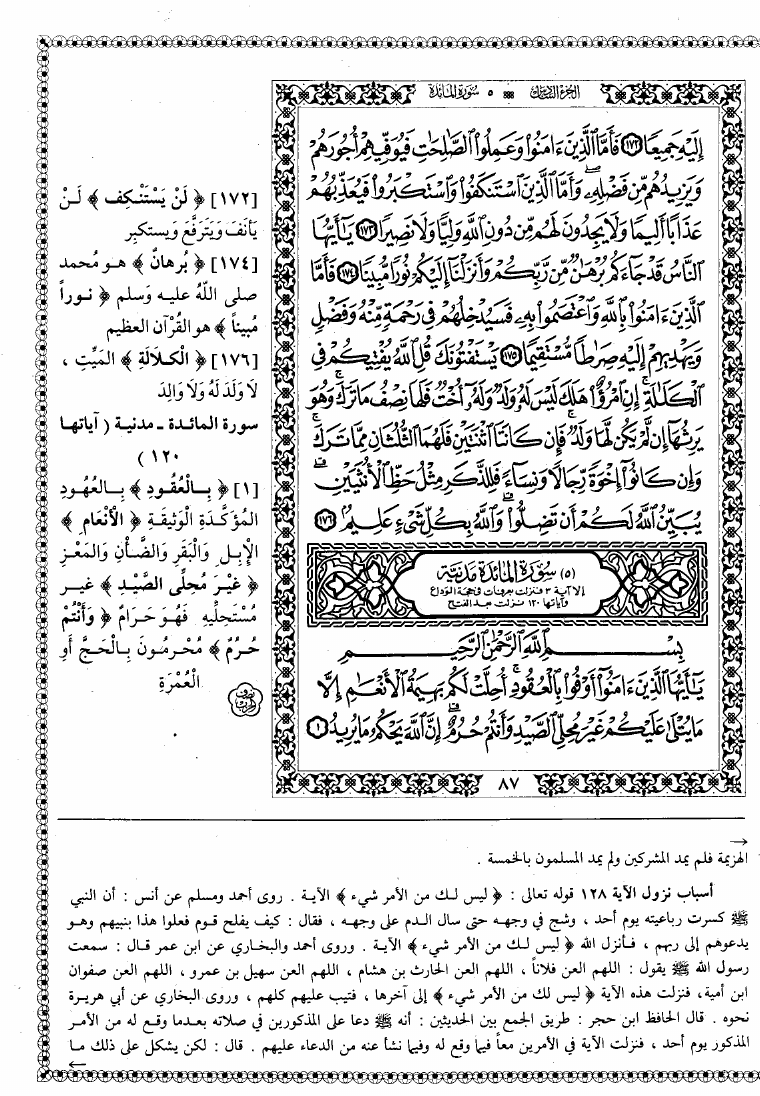 سورة المائدة ٥
إِلَيْهِ جَمِيعًا ١٧٢ فَأَمَّا الَّذِينَ ءَامَنُوا وَعَمِلُوا الصَّالِحَاتِ فَيُوَفِّيهِمْ أُجُورَهُمْ
وَيَزِيدُهُم مِّن فَضْلِهِ وَأَمَّا الَّذِينَ اسْتَنكَفُوا وَاسْتَكْبَرُوا فَيُعَذِّبُهُمْ
عَذَابًا أَلِيمًا وَلَا يَجِدُونَ لَهُم مِّن دُونِ اللَّهِ وَلِيًّا وَلَا نَصِيرًا ١٧٣ يَٰأَيُّهَا
النَّاسُ قَدْ جَاءَكُم بُرْهَٰنٌ مِّن رَّبِّكُمْ وَأَنزَلْنَا إِلَيْكُمْ نُورًا مُّبِينًا ١٧٤ فَأَمَّا
الَّذِينَ ءَامَنُوا بِاللَّهِ وَاعْتَصَمُوا بِهِ فَسَيُدْخِلُهُمْ فِي رَحْمَةٍ مِّنْهُ وَفَضْلٍ
وَيَهْدِيهِمْ إِلَيْهِ صِرَٰطًا مُّسْتَقِيمًا ١٧٥ يَسْتَفْتُونَكَ قُلِ اللَّهُ يُفْتِيكُمْ فِي
الْكَلَٰلَةِ إِنِ امْرُؤٌا هَلَكَ لَيْسَ لَهُ وَلَدٌ وَلَهُ أُخْتٌ فَلَهَا نِصْفُ مَا تَرَكَ وَهُوَ
يَرِثُهَا إِن لَّمْ يَكُن لَّهَا وَلَدٌ فَإِن كَانَتَا اثْنَتَيْنِ فَلَهُمَا الثُّلُثَانِ مِمَّا تَرَكَ
وَإِن كَانُوا إِخْوَةً رِّجَالًا وَنِسَاءً فَلِلذَّكَرِ مِثْلُ حَظِّ الْأُنثَيَيْنِ
يُبَيِّنُ اللَّهُ لَكُمْ أَن تَضِلُّوا وَاللَّهُ بِكُلِّ شَيْءٍ عَلِيمٌ ١٧٦
(٥) سورة المائدة مدنية
إلا آية ٣ فنزلت بعرفات في حجة الوداع
وآياتها ١٢٠ نزلت بعد الفتح
بِسْمِ اللَّهِ الرَّحْمَٰنِ الرَّحِيمِ
يَٰأَيُّهَا الَّذِينَ ءَامَنُوا أَوْفُوا بِالْعُقُودِ أُحِلَّتْ لَكُم بَهِيمَةُ الْأَنْعَٰمِ إِلَّا
مَا يُتْلَىٰ عَلَيْكُمْ غَيْرَ مُحِلِّي الصَّيْدِ وَأَنتُمْ حُرُمٌ إِنَّ اللَّهَ يَحْكُمُ مَا يُرِيدُ ١
٨٧
[١٧٢] ﴿ لَنْ يَسْتَنْكِف ﴾ لَـنْ
يَأنَفَ وَيَتَرَفَّعَ وَيستكبِر
[١٧٤] ﴿ بُرهانٌ ﴾ هـو مُحمد
صلى اللَّهُ عليـه وَسلم ﴿ نـوراً
مُبيناً ﴾ هو القُرْآن العظيم
[١٧٦] ﴿ الْكـلاَلَةِ ﴾ المَيِّت ،
لاَ وَلَدَ لَهُ وَلاَ وَالِدَ
سورة المـائـدة ـ مدنيـة ( آياتهـا
١٢٠ )
[١] ﴿ بِـالْعُقُـودِ ﴾ بِـالعُهُـودِ
المُؤَكَّـدَةِ الْوَثِيقَـةِ ﴿ الأَنْعَامِ ﴾
الإِبِـلِ وَالْبَقَرِ وَالضَّـأْنِ وَالمَعْـزِ
﴿ غَيْـرَ مُحِلِّي الصَّيْـدِ ﴾ غيـر
مُسْتَحِلِّيهِ فَهُـوَ حَـرَامٌ ﴿ وَأَنْتُمْ
حُـرُمٌ ﴾ مُحْـرِمُـونَ بِـالْحَـجِّ أَوِ
الْعُمْرَةِ
→
الهزيمة فلم يمد المشركين ولم يمد المسلمون بالخمسة .
أسباب نزول الآية ١٢٨ قوله تعالى : ﴿ ليس لـك من الأمر شيء ﴾ الآيـة . روى أحمد ومسلم عن أنس : أن النبي
ﷺ كسرت رباعيته يوم أحد ، وشج في وجهـه حتى سال الـدم على وجهـه ، فقال : كيف يفلح قـوم فعلوا هذا بنبيهم وهـو
يدعوهم إلى ربهم ، فـأنزل الله ﴿ ليس لـك من الأمر شيء ﴾ الآيـة . وروى أحمد والبخـاري عن ابن عمر قـال : سمعت
رسول الله ﷺ يقول : اللهم العن فلاناً ، اللهم العن الحارث بن هشام ، اللهم العن سهيل بن عمرو ، اللهم العن صفوان
ابن أمية، فنزلت هذه الآية ﴿ ليس لك من الأمر شيء ﴾ إلى آخرها ، فتيب عليهم كلهم ، وروى البخاري عن أبي هريرة
نحوه . قال الحافظ ابن حجر : طريق الجمع بين الحديثين : أنه ﷺ دعا على المذكورين في صلاته بعدما وقع له من الأمر
المذكور يوم أحد ، فنزلت الآية في الأمرين معاً فيما وقع له وفيما نشأ عنه من الدعاء عليهم . قال : لكن يشكل على ذلك مـا
←